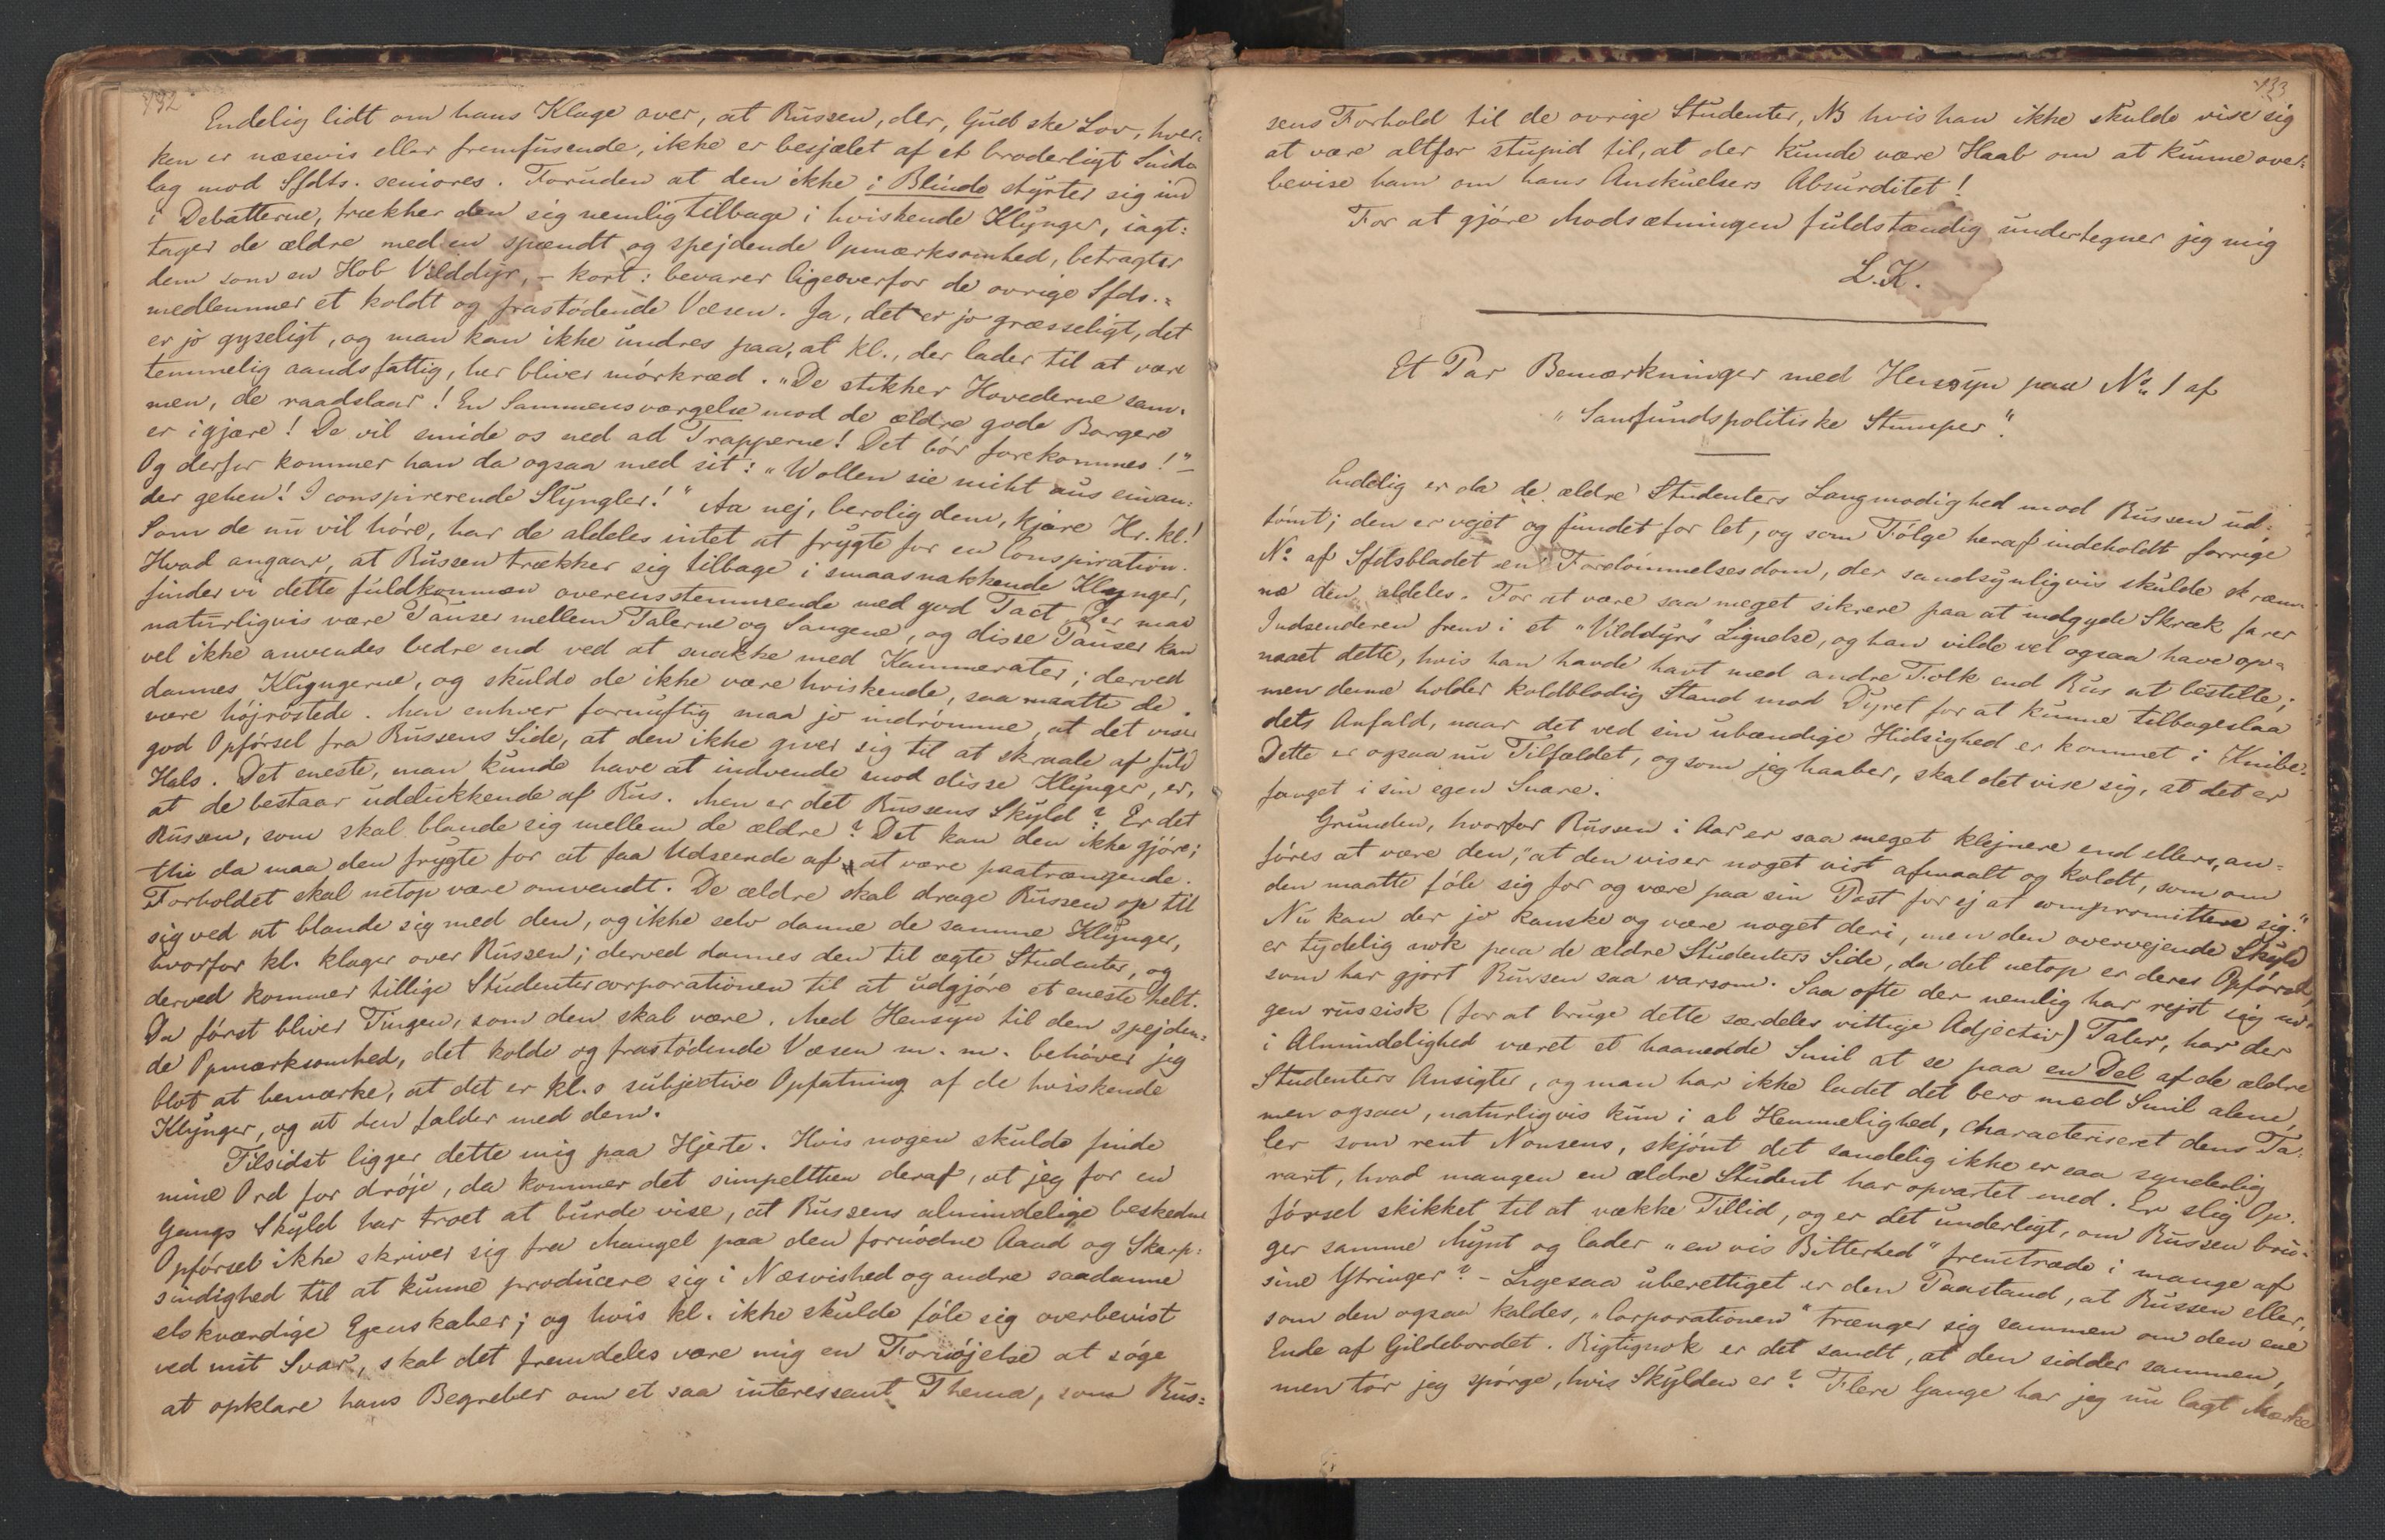 132
Endelig lidt om hans Klage over, at Russen, der, Gud ske Lov, hver-
ken er næsevis eller fremfusende, ikke er besjælet af et broderligt Sinde
lag mod Sfdts. seniores. Foruden at den ikke i Blinde styrter sig ind
i Debatterne, trækker den sig nemlig tilbage i hviskende Klynger, iagt:
tager de ældre med en spændt og spejdende Opmærksomhed, betragter
dem som en Hob Vilddyr, – kort: bevarer ligeoverfor de øvrige Sfds.=
medlemmer et koldt og frastödende Væsen. Ja, det er jo græsseligt, det
er jo gyseligt, og man kan ikke undres paa, at kl., der lader til at være
temmelig aandsfattig, her bliver mörkræd. "De stikker Hovederne sam-
men, de raadslaar! En Sammensværgelse mod de ældre gode Borgere
er igjære! De vil smide os ned ad Trapperne! Det bör forekommes!" –
Og derfor kommer han da ogsaa med sit: "Wollen sie nicht aus einan:
der gehen! I conspirerende Slyngler!" Aa nej, berolig dem, kjære Hr. kl.!
Som de nu vil höre, har de aldeles intet at frygte for en Conspiration.
Hvad angaar, at Russen trækker sig tilbage i smaasnakkende Klynger,
finder vi dette fuldkommen overensstemmende med god Tact. Der maa
naturligvis være Pauser mellem Talerne og Sangene, og disse Pauser kan
vel ikke anvendes bedre end ved at snakke med Kammerater; derved
dannes Klyngerne, og skulde de ikke være hviskende, saa maatte de
være höjröstede. Men enhver fornuftig maa jo indrömme, at det viser
god Opförsel fra Russens Side, at den ikke giver sig til at skraale af fuld
Hals. Det eneste, man kunde have at indvende mod disse Klynger, er,
at de bestaar udelukkende af Rus. Men er det Russens Skyld? Er det
Russen, som skal blande sig mellem de ældre? Det kan den ikke gjöre;
thi da maa den frygte for at faa Udseende af at være paatrængende.
Forholdet skal netop være omvendt. De ældre skal drage Russen op til
sig ved at blande sig med den, og ikke selv danne de samme Klynger,
hvorfor kl. klager over Russen; derved dannes den til ægte Studenter, og
derved kommer tillige Studentercorporationen til at udgjöre et eneste helt.
Da först bliver Tingen, som den skal være. Med Hensyn til den spejden:
de Opmærksomhed, det kolde og frastödende Væsen m. m. behöver jeg
blot at bemærke, at det er kl.s subjective Opfatning af de hviskende
Klynger, og at den falder med dem.
Tilsidst ligger dette mig paa Hjerte. Hvis nogen skulde finde
mine Ord for dröje, da kommer det simpelthen deraf, at jeg for en
Gangs Skyld har troet at burde vise, at Russens almindelige beskedne
Opförsel ikke skriver sig fra Mangel paa den fornödne Aand og Skarp:
sindighed til at kunne producere sig i Næsvished og andre saadanne
elskværdige Egenskaber; og hvis kl. ikke skulde föle sig overbevist
ved mit Svar, skal det fremdeles være mig en Fornöjelse at söge
at opklare hans Begreber om et saa interessant Thema, som Rus:
133
sens Forhold til de övrige Studenter, NB hvis han ikke skulde vise sig
at være altfor stupid til, at der kunde være Haab om at kunne over:
bevise ham om hans Anskuelsers Absurditet!
For at gjöre Modsætningen fuldstændig undertegner jeg mig
L.K.
Et Par Bemærkninger med Hensyn paa No. 1 af
"Samfundspolitiske Stumper".
Endelig er da de ældre Studenters Langmodighed mod Russen ud:
tömt; den er vejet og fundet for let, og som Fölge heraf indeholdt forrige
No. af Sfdsbladet en Fordömmelsesdom, der sandsynligvis skulde skræm
me den aldeles. For at være saa meget sikrere paa at indgyde Skræk farer
Indsenderen frem i et "Vilddyrs" Lignelse, og han vilde vel ogsaa have op=
naaet dette, hvis han havde havt med andre Folk end Rus at bestille;
men denne holder koldblodig Stand mod Dyret for at kunne tilbageslaa
dets Anfald, naar det ved sin ubændige Hidsighed er kommet i Knibe.
Dette er ogsaa nu Tilfældet, og som jeg haaber, skal det vise sig, at det er
fanget i sin egen Snare.
Grunden, hvorfor Russen i Aar er saa meget klejnere end ellers, an-
föres at være den, "at den viser noget vist afmaalt og koldt, som om
den maatte föle sig for og være paa sin Post for ej at compromittere sig."
Nu kan der jo kanske og være noget deri, men den overvejende Skyld
er tydelig nok paa de ældre Studenters Side, da det netop er deres Opförsel,
som har gjort Russen saa varsom. Saa ofte der nemlig har rejst sig no-
gen russisk (for at bruge dette særdeles vittige Adjectiv) Taler, har der
i Almindelighed været et haanedde Smil at se paa en Del af de ældre
Studenters Ansigter, og man har ikke ladet det bero med Smil alene,
men ogsaa, naturligvis kun i al Hemmelighed, characteriseret dens Ta:
ler som rent Nonsens, skjönt det sandelig ikke er saa synderlig
rart, hvad mangen en ældre Student har opvartet med. Er slig Op-
försel skikket til at vække Tillid, og er det underligt, om Russen bru-
ger samme Mynt og lader "en vis Bitterhed" fremtræde i mange af
sine Ytringer? – Ligesaa uberettiget er den Paastand, at Russen eller,
som den ogsaa kaldes, "Corporationen" trænger sig sammen om den ene
Ende af Gildebordet. Rigtignok er det sandt, at den sidder sammen,
men tör jeg spörge, hvis Skylden er? Flere Gange har jeg nu lagt Mærke